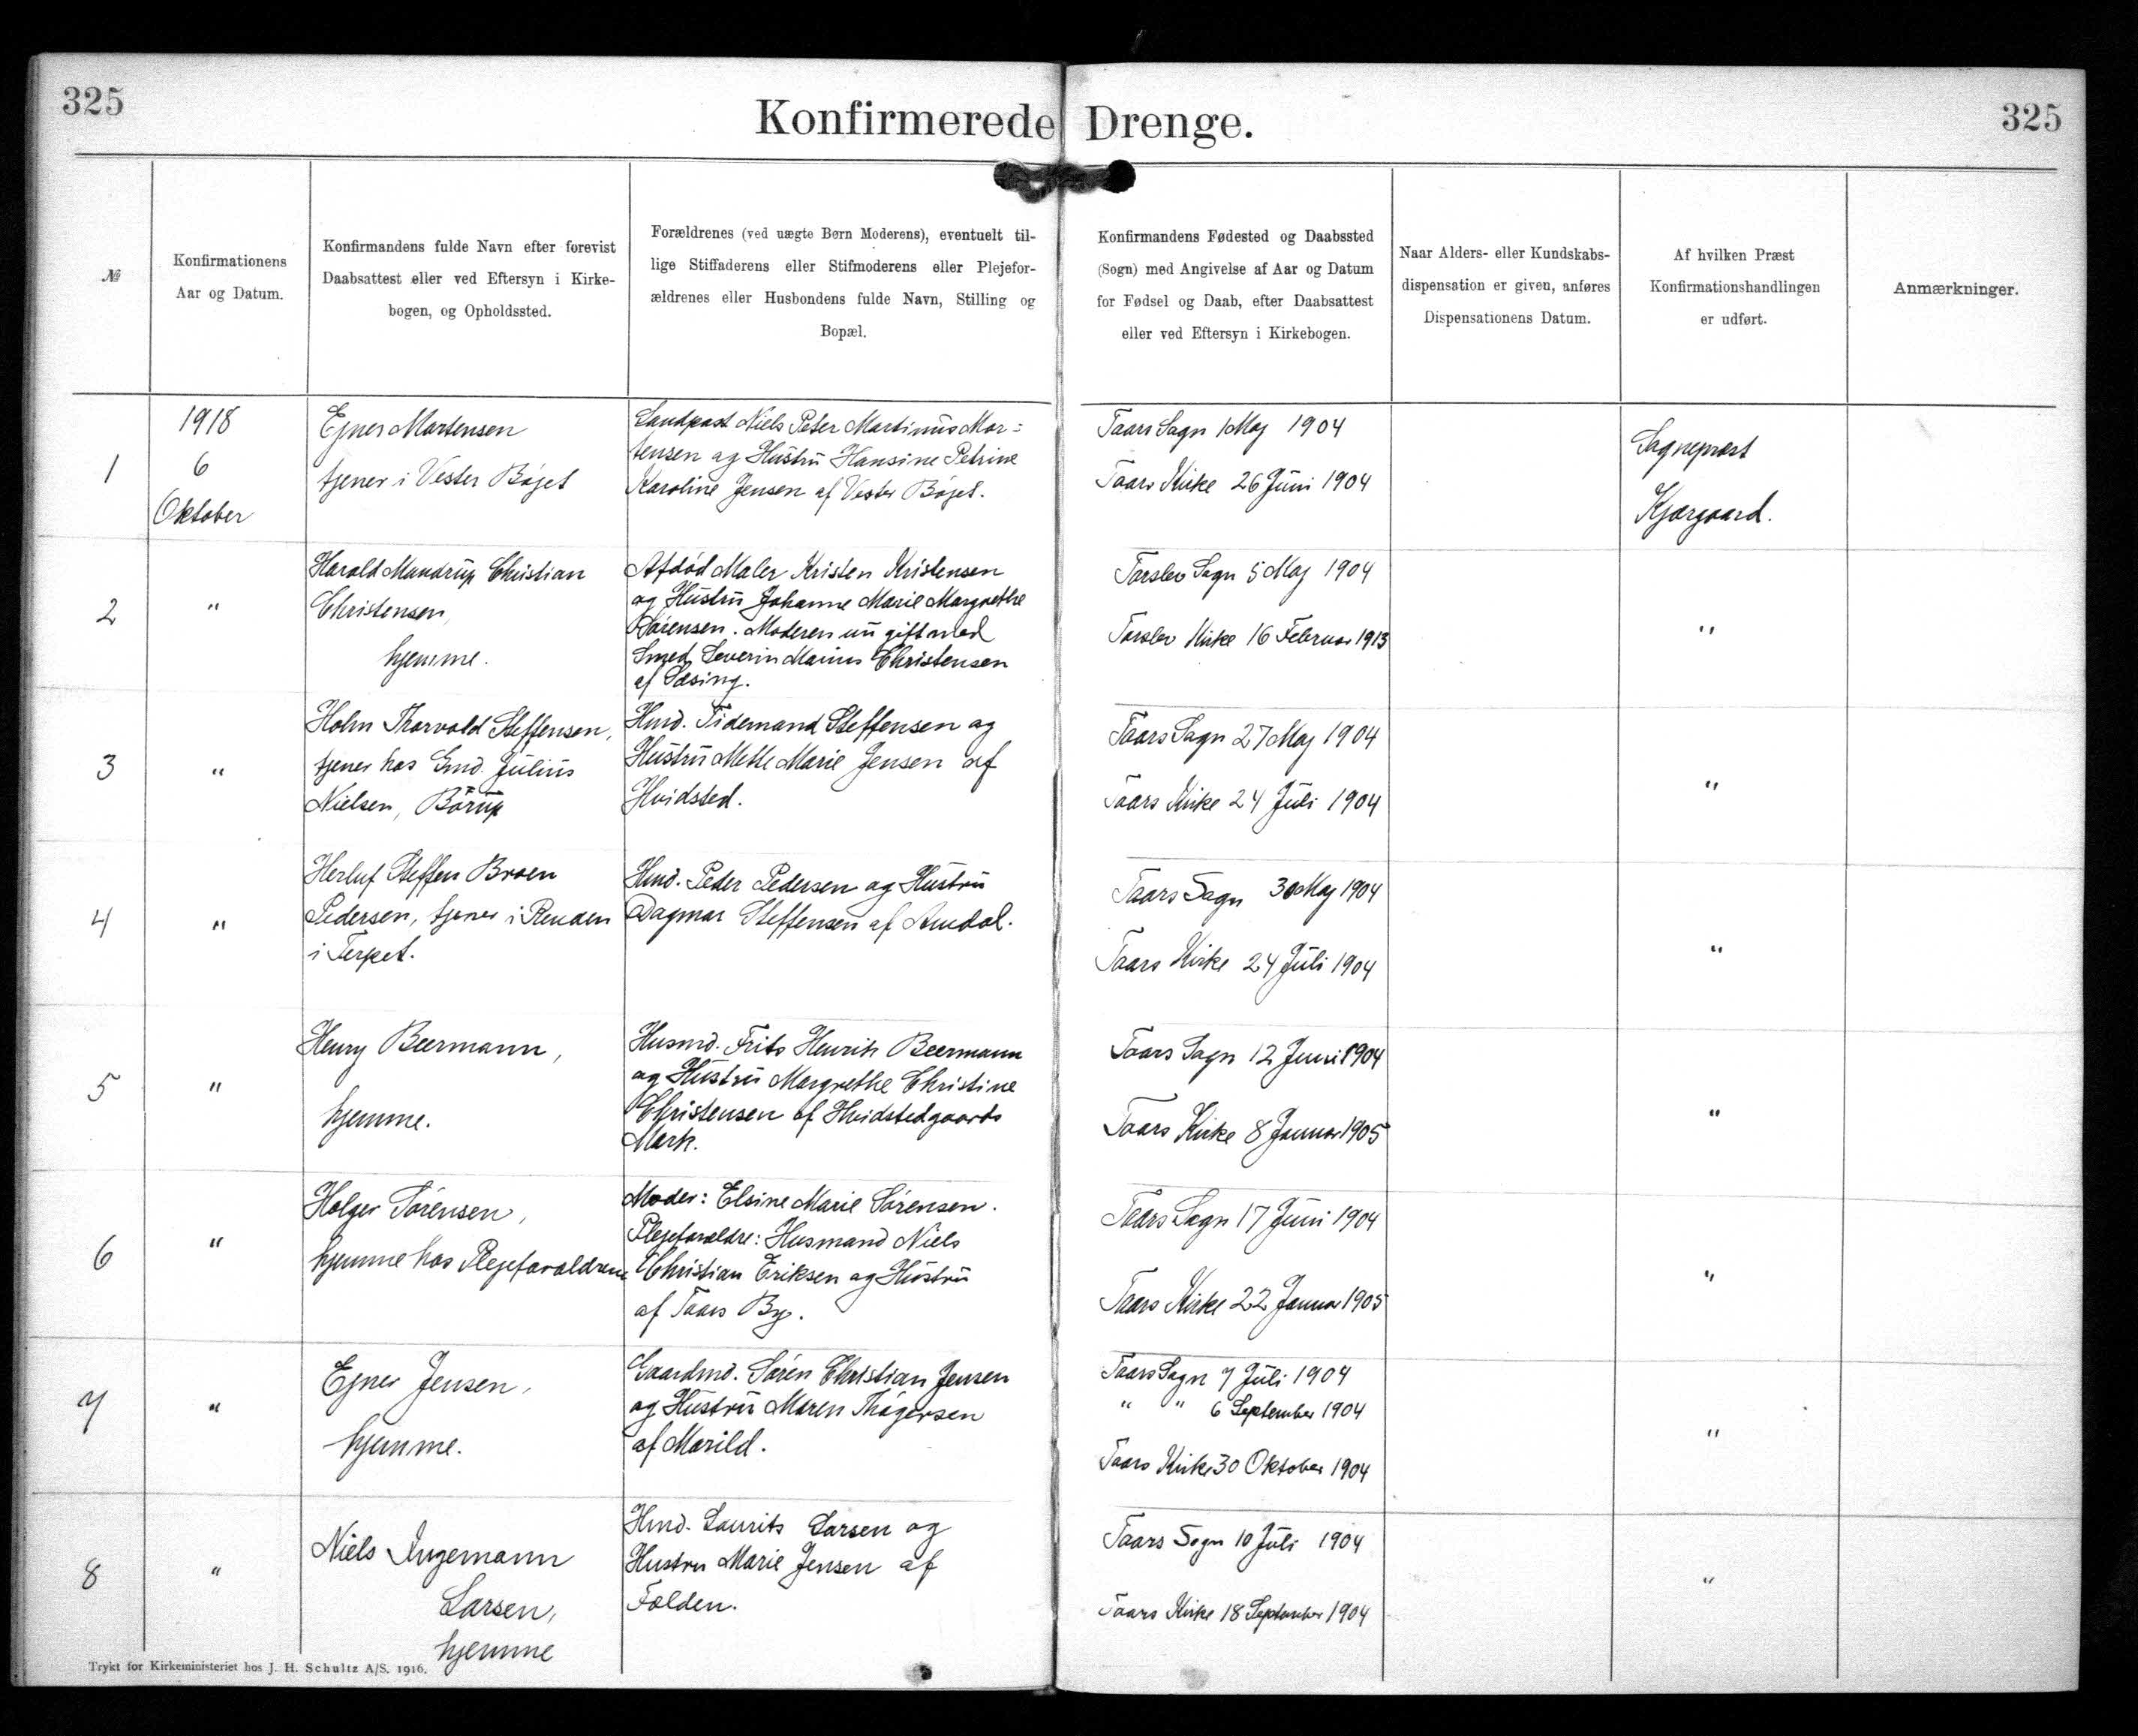 325
Konfirmerede Drenge.
325
№
Konfirmationens
Aar og Datum.
Konfirmandens fulde Navn efter forevist
Daabsattest eller ved Eftersyn i Kirke-
bogen, og Opholdssted.
Forældrenes (ved uægte Børn Moderens), eventuelt til-
lige Stiffaderens eller Stifmoderens eller Plejefor-
ældrenes eller Husbondens fulde Navn, Stilling og
Bopæl.
Konfirmandens Fødested og Daabssted
(Sogn) med Angivelse af Aar og Datum
for Fødsel og Daab, efter Daabsattest
eller ved Eftersyn i Kirkebogen.
Naar Alders- eller Kundskabs-
dispensation er given, anføres
Dispensationens Datum.
Af hvilken Præst
Konfirmationshandlingen
er udført.
Anmærkninger.
1
1918
6
Oktober
Ejner Martensen
tjener i Vester Bøjet
Landpost Niels Peter Martinus Mar=
tensen og Hustru Hansine Petrine
Karoline Jensen af Vester Bøjet.
Taars Sogn 1 Maj 1904
Taars Kirke 26 Juni 1904
Sognepræst
Kjærgaard.
2
"
Harald Mandrup Christian
Christensen,
hjemme.
Afdød Maler Kristen Kristensen
og Hustru Johanne Marie Margrethe
Sørensen. Moderen nu gift med
Smed Severin Marius Christensen
af Sæsing.
Torslev Sogn 5 Maj 1904
Torslev Kirke 16 Februar 1913
"
3
"
Holm Thorvald Steffensen,
tjener hos Gmd. Julius
Nielsen, Börup
Hmd. Tidemand Steffensen og
Hustru Mette Marie Jensen af
Hvidsted.
Taars Sogn 27 Maj 1904
Taars Kirke 24 Juli 1904
"
4
"
Herluf Steffen Broen
Pedersen, tjener i Renden
i Terpet.
Hmd. Peder Pedersen og Hustru
Dagmar Steffensen af Amdal.
Taars Sogn 30 Maj 1904
Taars Kirke 24 Juli 1904
"
5
"
Henry Beermann,
hjemme.
Husmd. Frits Henrik Beermann
og Hustru Margrethe Christine
Christensen af Hvidstedgaards
Mark.
Taars Sogn 12 Juni 1904
Taars Kirke 8 Januar 1905
"
6
"
Holger Sørensen,
hjemme hos Plejeforældrene
Moder: Elsine Marie Sørensen.
Plejeforældre: Husmand Niels
Christian Eriksen og Hustru
af Taars By.
Taars Sogn 17 Juni 1904
Taars Kirke 22 Januar 1905
"
7
"
Ejner Jensen,
hjemme.
Gaardmd. Søren Christian Jensen
og Hustru Maren Thøgersen
af Marild.
Taars Sogn 7 Juli 1904
" " 6 September 1904
Taars Kirke 30 Oktober 1904
"
8
"
Niels Ingemann
Larsen,
hjemme
Hmd. Laurits Larsen og
Hustru Marie Jensen af
Folden.
Taars Sogn 10 Juli 1904
Taars Kirke 18 September 1904
"
Trykt for Kirkeministeriet hos J. H. Schultz A/S. 1916.